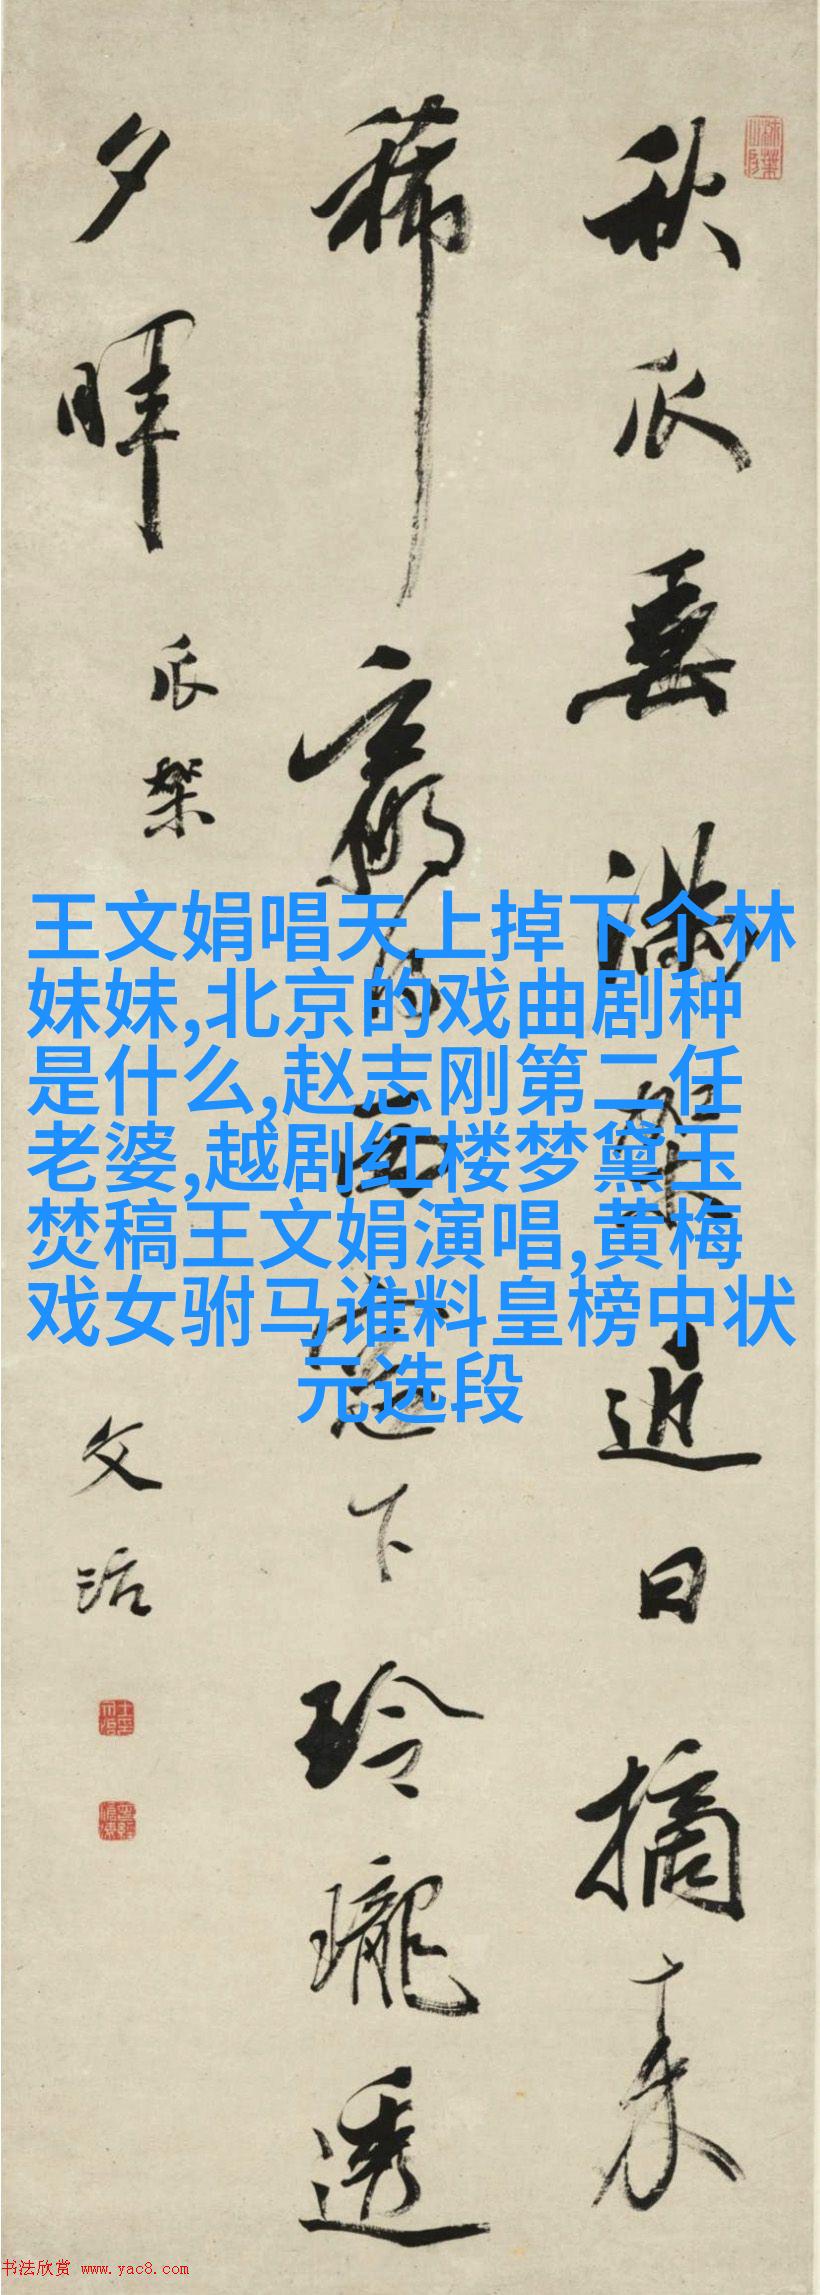 秋瓜垂滿架近日摘来
稀贏得西窓下玲瓏透
夕暉
瓜架
文治
王文娟唱天上掉下个林
妹妹,北京的戏曲剧种
是什么,赵志刚第二任
老婆,越剧红楼梦黛玉
焚稿王文娟演唱,黄梅
戏女驸马谁料皇榜中状
元选段
书法欣赏 www.yac8.com